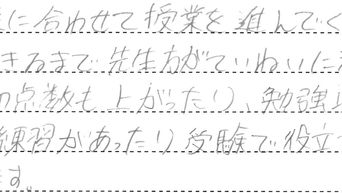 に合わせて授業を進んでく
きるまで先生方がていねいに
点数も上がったり、勉強
練習があったり受験で役立
す。